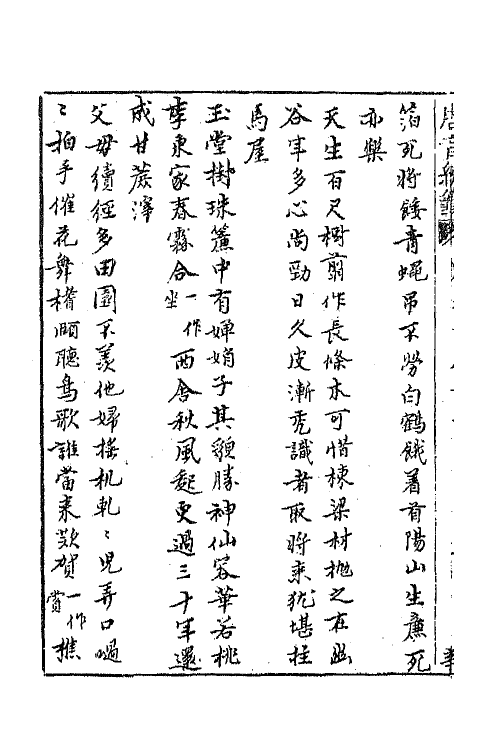 箔死將餧青蠅弔不勞白鶴餓著首陽山生廉死
亦樂
天生百尺樹翦作長條木可惜棟梁材抛之在幽
谷年多心尚勁日久皮漸禿識者取將來猶堪柱
馬屋
玉堂掛珠簾中有嬋娟子其貌勝神仙容華若桃
李東家春霧合一作坐西舍秋風起更過三十年還
成甘蔗滓
父母續經多田園不羡他婦搖机軋〻兒弄口喎
〻拍手催花舞榰頤聽鳥歌誰當來歎賀一作賞樵